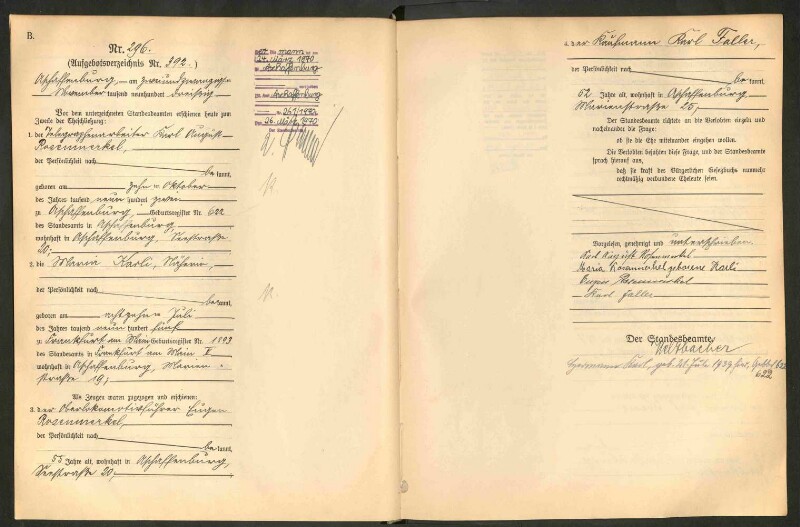 B.
Nr. 296.
(Aufgebotsverzeichnis Nr. 392.)
Aschaffenburg, am zweiundzwanzigsten
November tausend neunhundert dreißig
Vor dem unterzeichneten Standesbeamten erschienen heute zum
Zwecke der Eheschließung:
1. der Telegraphenarbeiter Karl August
Rosenmerkel,
der Persönlichkeit nach
be kannt,
geboren am zehnten Oktober
des Jahres tausend neun hundert zwei
zu Aschaffenburg, Geburtsregister Nr. 622
des Standesamts in Aschaffenburg,
wohnhaft in Aschaffenburg, Seestraße
20;
2. die Maria Karli, Näherin,
der Persönlichkeit nach
be kannt,
geboren am achtzehnten Juli
des Jahres tausend neun hundert fünf
zu Frankfurt am Main Geburtsregister Nr. 1893
des Standesamts in Frankfurt am Main I
wohnhaft in Aschaffenburg, Marien-
straße 19;
Als Zeugen waren zugezogen und erschienen:
3. der Oberlokomotivführer Eugen
Rosenmerkel,
der Persönlichkeit nach
be kannt,
55 Jahre alt, wohnhaft in Aschaffenburg,
Seestraße 20;
mann
24. März 1970
Aschaffenburg
Aschaffenburg
26. März 1970
4. der Kaufmann Karl Faller,
der Persönlichkeit nach
be kannt,
52 Jahre alt, wohnhaft in Aschaffenburg,
Marienstraße 25.
Der Standesbeamte richtete an die Verlobten einzeln und
nacheinander die Frage:
ob sie die Ehe miteinander eingehen wollen.
Die Verlobten bejahten diese Frage, und der Standesbeamte
sprach hierauf aus,
daß sie kraft des Bürgerlichen Gesetzbuchs nunmehr
rechtmäßig verbundene Eheleute seien.
Vorgelesen, genehmigt und unterschrieben
Karl August Rosenmerkel
Maria Rosenmerkel geborene Karli
Eugen Rosenmerkel
Karl Faller
Der Standesbeamte
Karl, geb. 21. Juli 1939
622